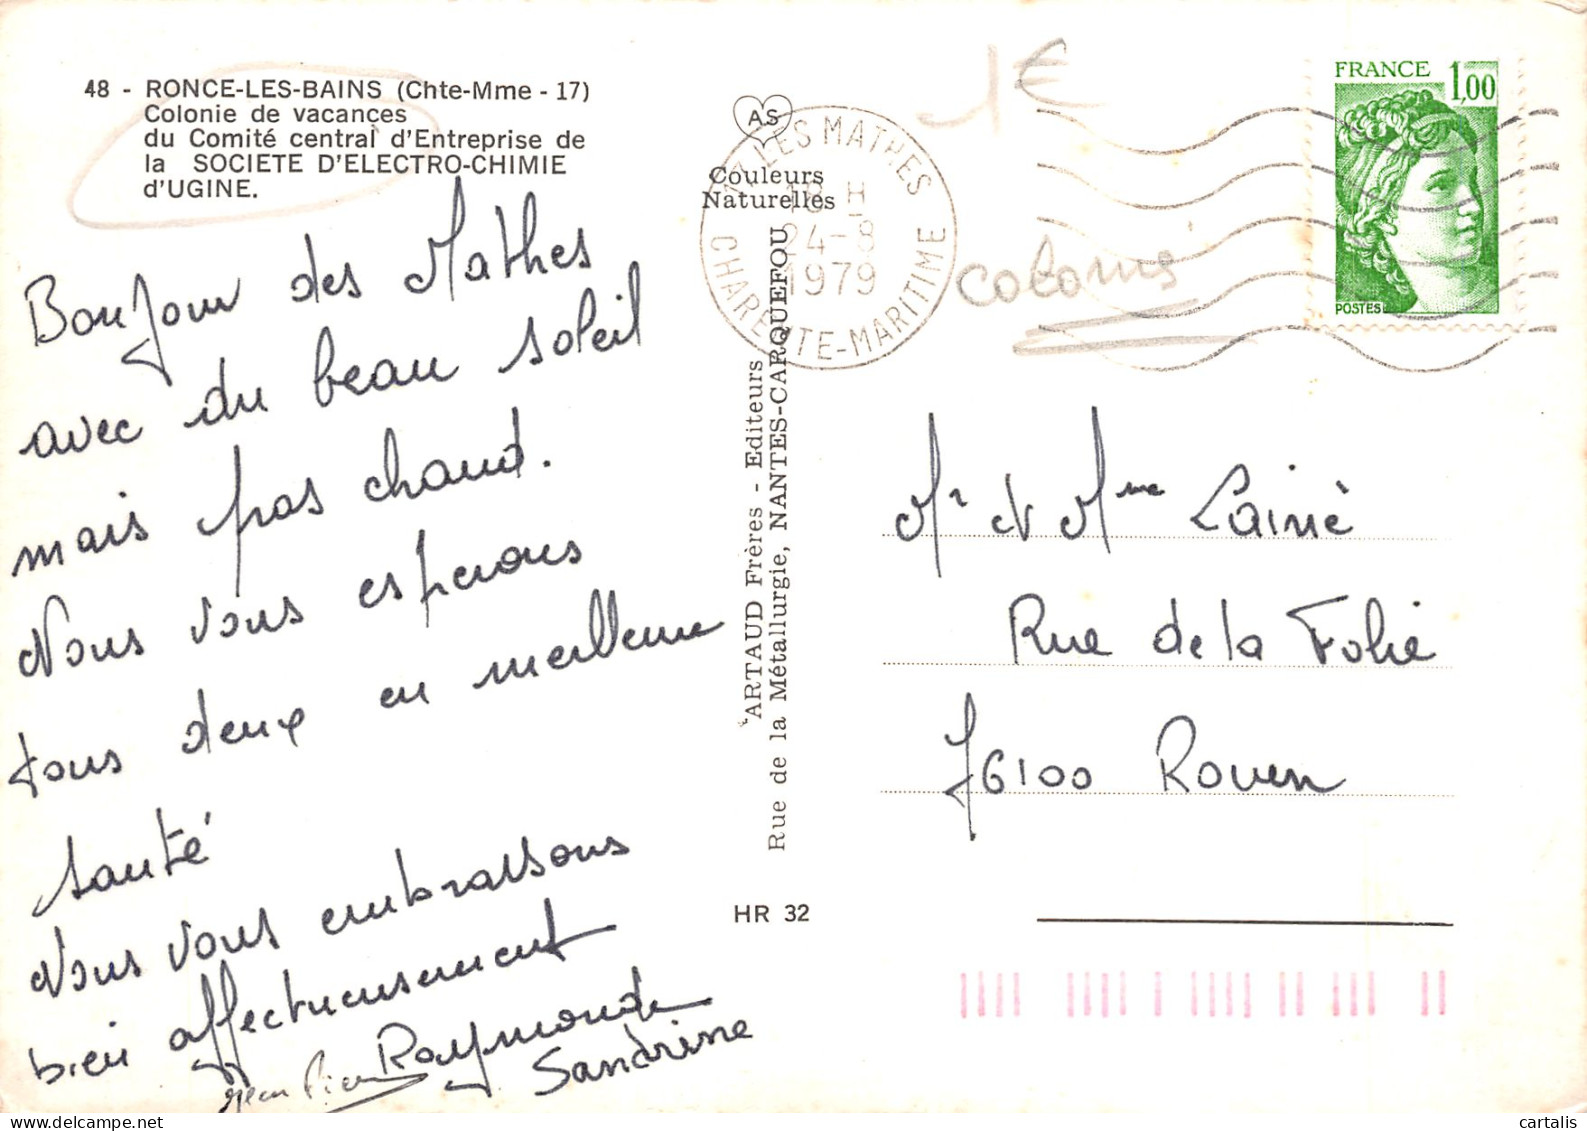 48 - RONCE-LES-BAINS (Chte-Mme - 17)
Colonie de vacances
du Comité central d'Entreprise de
la SOCIETE D'ELECTRO-CHIMIE
d'UGINE.
Bonjour des Mathes
avec du beau soleil
mais pas chaud.
Nous vous esperons
tous deux en meilleure
santé
Nous vous embrassons
bien affectueusement
Jean Pierre Raymonde
Sandrine
AS
Couleurs
Naturelles
17 LES MATHES
18 H
24-8
1979
CHARENTE-MARITIME
ARTAUD Frères - Editeurs
Rue de la Métallurgie, NANTES-CARQUEFOU
HR 32
1€
colonie
FRANCE 1,00
POSTES
Mr et Mme Lainé
Rue de la Folie
76100 Rouen
cartalis